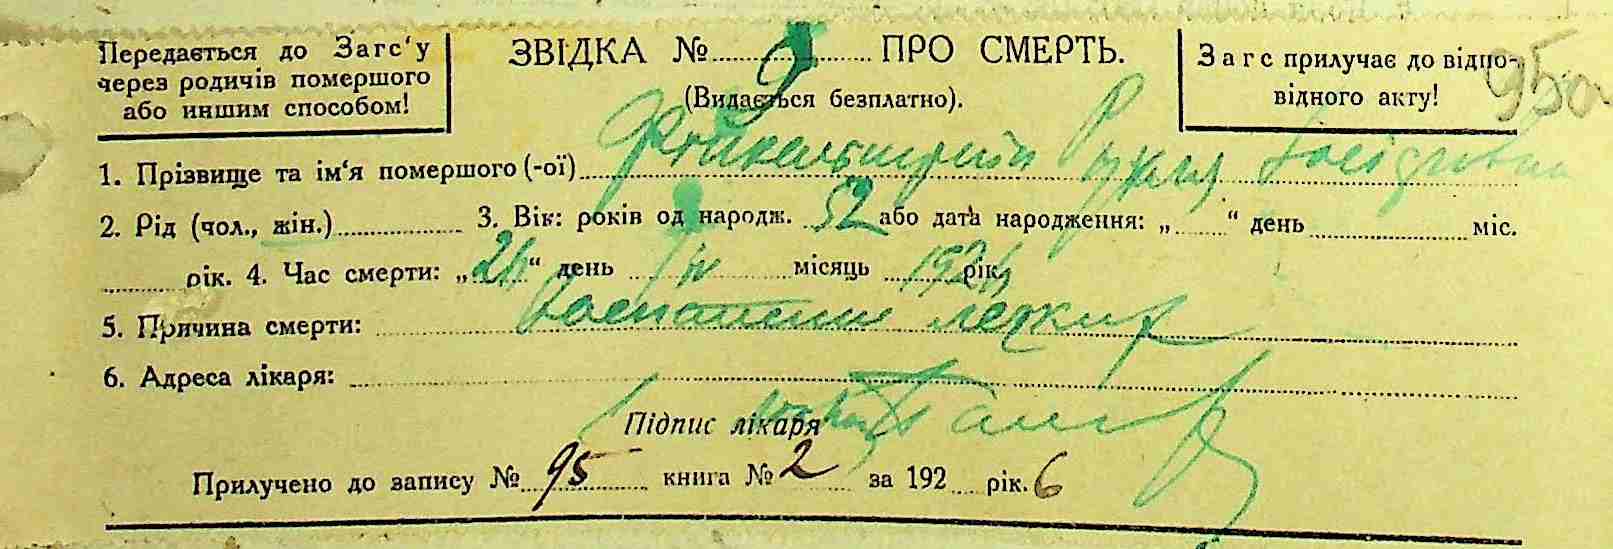 Передається до Загс‘у
через родичів помершого
або иншим способом!
ЗВІДКА № 9 ПРО СМЕРТЬ.
(Видається безплатно).
Загс прилучає до відпо-
відного акту!
95
1. Прізвище та ім‘я помершого (-ої)
2. Рід (чол., жін.) 3. Вік: років од народж. 52 або дата народження: „ “ день міс.
рік. 4. Час смерти: „ “ день IV місяць рік.
5. Причина смерти: Воспаление легких
6. Адреса лікаря:
Підпис лікаря
Прилучено до запису № 95 книга № 2 за 192 рік. 6